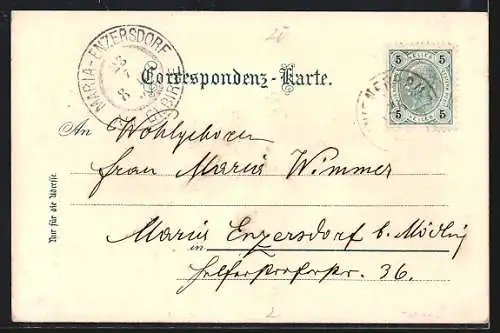 MARIA-ENZERSDORF
GEBIRGE
Correspondenz-Karte.
5 HELLER 5
5 HELLER 5
An Wohlgeboren
Frau Maria Wimmer
Maria Enzersdorf b. Mödling
in
36.
Nur für die Adresse.